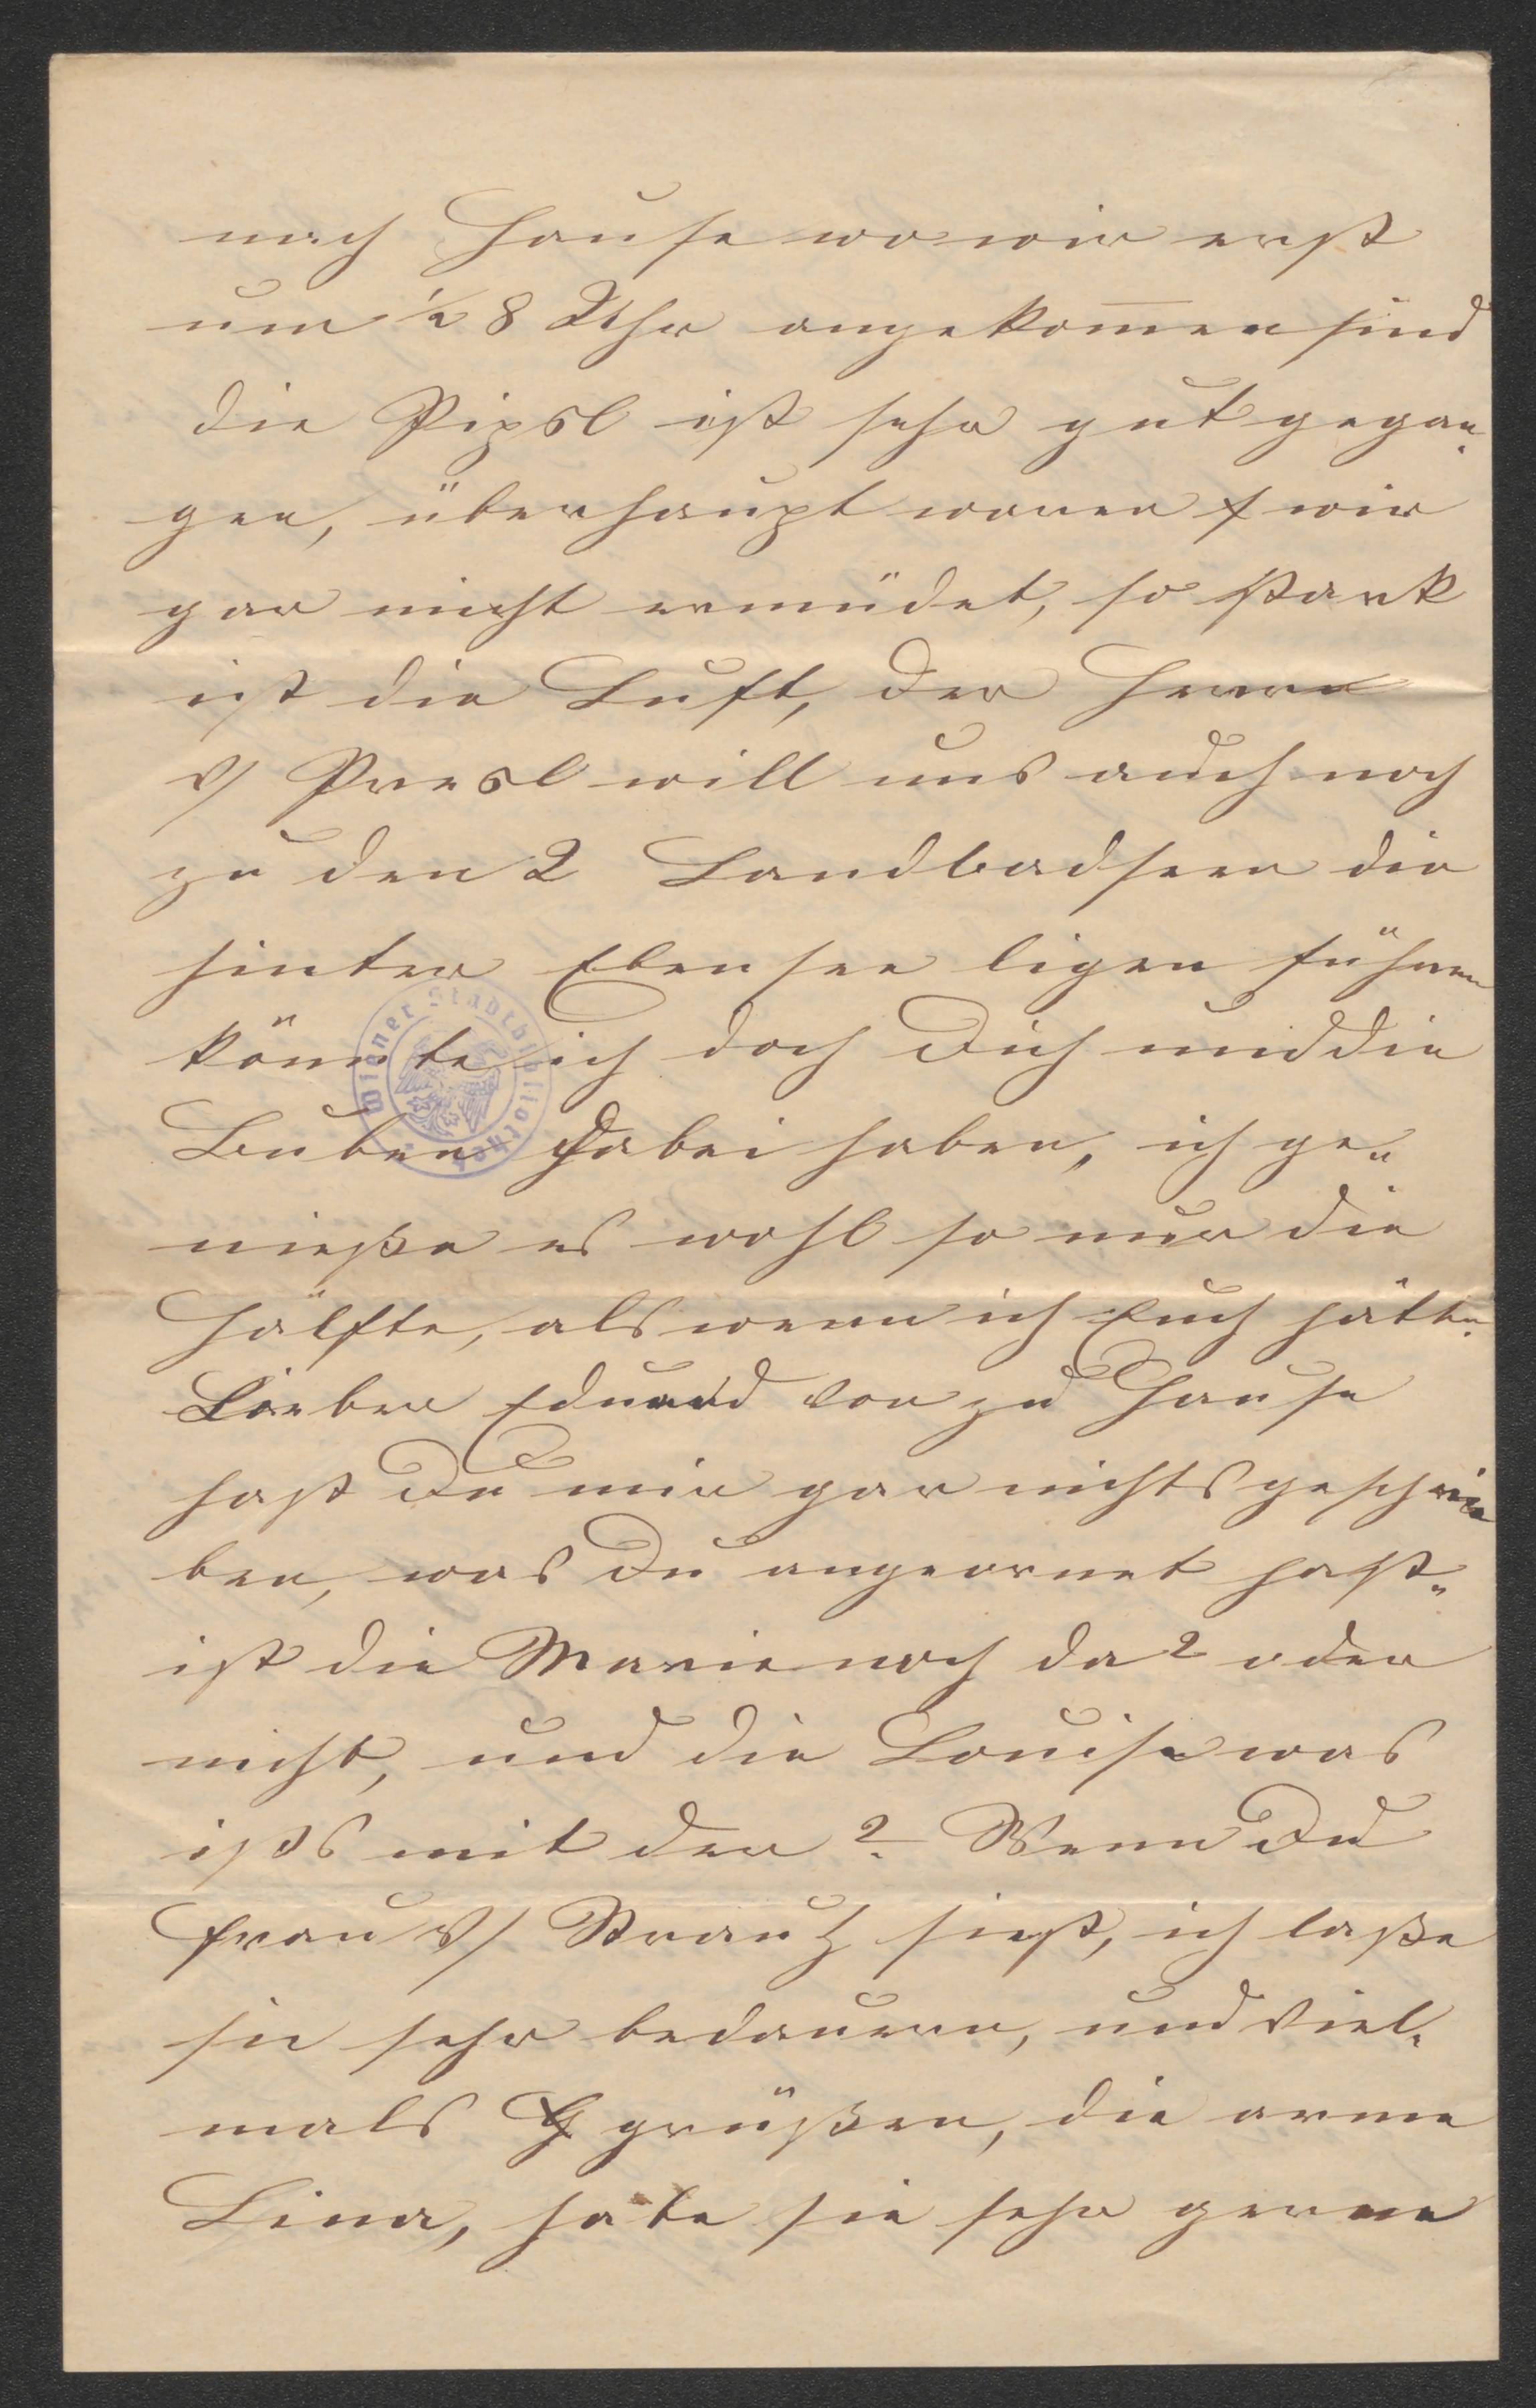 nach Hause wo wir erst
um ½ 8 Uhr angekom̅en sind
die Pipsl ist sehr gut gegan-
gen, überhaupt waren wir
gar nicht ermüdet, so stark
ist die Luft, der Herr
v/ Presl will uns auch noch
zu den 2 Landbadseen die
hinter Ebensee ligen führen
könnte ich doch Dich und die
Buben dabei haben, ich ge„
nieße es wohl so nur die
Hälfte, als wenn ich Euch hätte.
Lieber Eduard von zu Hause
hast Du mir gar nichts geschrie
ben, was Du angeornet hast„
ist die Marie noch da? oder
nicht, und die Louise was
ists mit der? Wenn Du
Frau v/ Strantz siehst, ich laße
sie sehr bedauern, und viel-
mals grüßen, die arme
Lina, habe sie sehr gerne
Wiener Stadtbibliothek